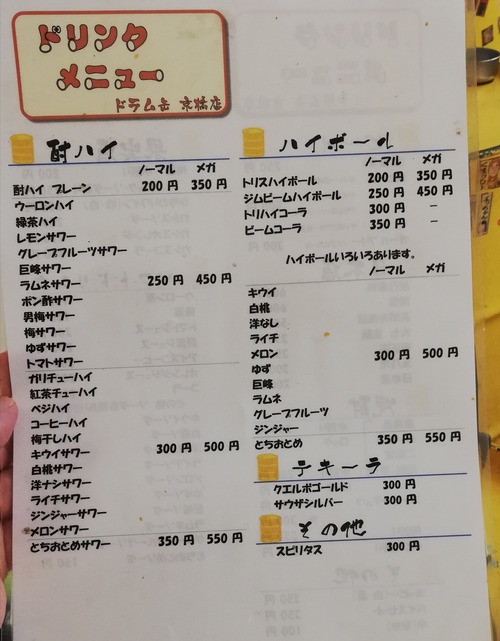 ドリンク
メニュー
ドラム缶 京橋店
酎ハイ
ノーマル メガ
酎ハイ プレーン 200円 350円
ウーロンハイ
緑茶ハイ
レモンサワー
グレープフルーツサワー
巨峰サワー
ラムネサワー 250円 450円
ポン酢サワー
男梅サワー
梅サワー
ゆずサワー
トマトサワー
ガリチューハイ
紅茶チューハイ
ベジハイ
コーヒーハイ
梅干しハイ
キウイサワー 300円 500円
白桃サワー
洋ナシサワー
ライチサワー
ジンジャーサワー
メロンサワー
とちおとめサワー 350円 550円
ハイボール
ノーマル メガ
トリスハイボール 200円 350円
ジムビームハイボール 250円 450円
トリハイコーラ 300円 －
ビームコーラ 350円 －
ハイボールいろいろあります。
ノーマル メガ
キウイ
白桃
洋なし
ライチ
メロン 300円 500円
ゆず
巨峰
ラムネ
グレープフルーツ
ジンジャー
とちおとめ 350円 550円
テキーラ
クエルボゴールド 300円
サウザシルバー 300円
その他
スピリタス 300円